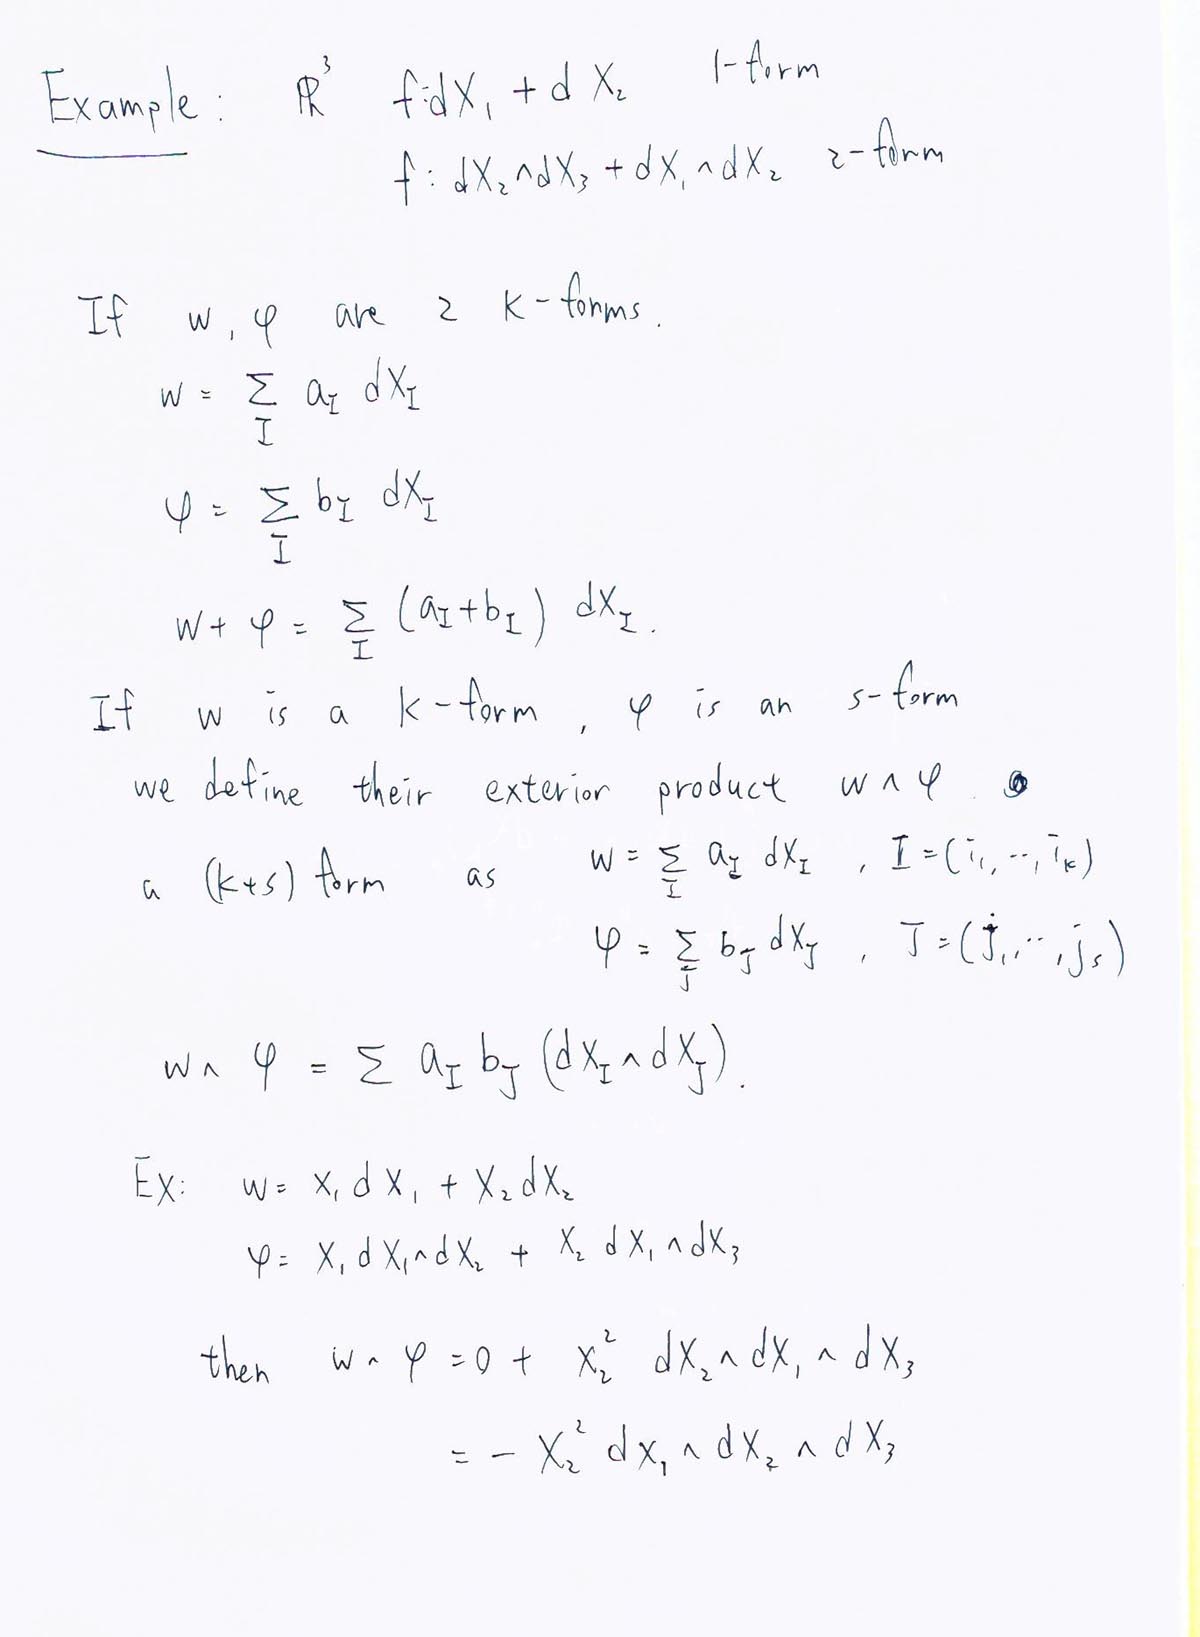 Example: ℝ³ f: dX₁ + dX₂ 1-form
f: dX₂∧dX₃ + dX₁∧dX₂ 2-form
If w, φ are 2 k-forms.
w = Σ_I a_I dX_I
φ = Σ_I b_I dX_I
w + φ = Σ_I (a_I + b_I) dX_I.
If w is a k-form, φ is an s-form
we define their exterior product w ∧ φ
a (k+s) form as w = Σ_I a_I dX_I , I = (i₁, ..., i_k)
φ = Σ_J b_J dX_J , J = (j₁, ..., j_s)
w ∧ φ = Σ a_I b_J (dX_I ∧ dX_J).
Ex: w = X₁dX₁ + X₂dX₂
φ = X₁dX₁∧dX₂ + X₂ dX₁∧dX₃
then w ∧ φ = 0 + X₂² dX₂∧dX₁∧dX₃
= − X₂² dX₁∧dX₂∧dX₃